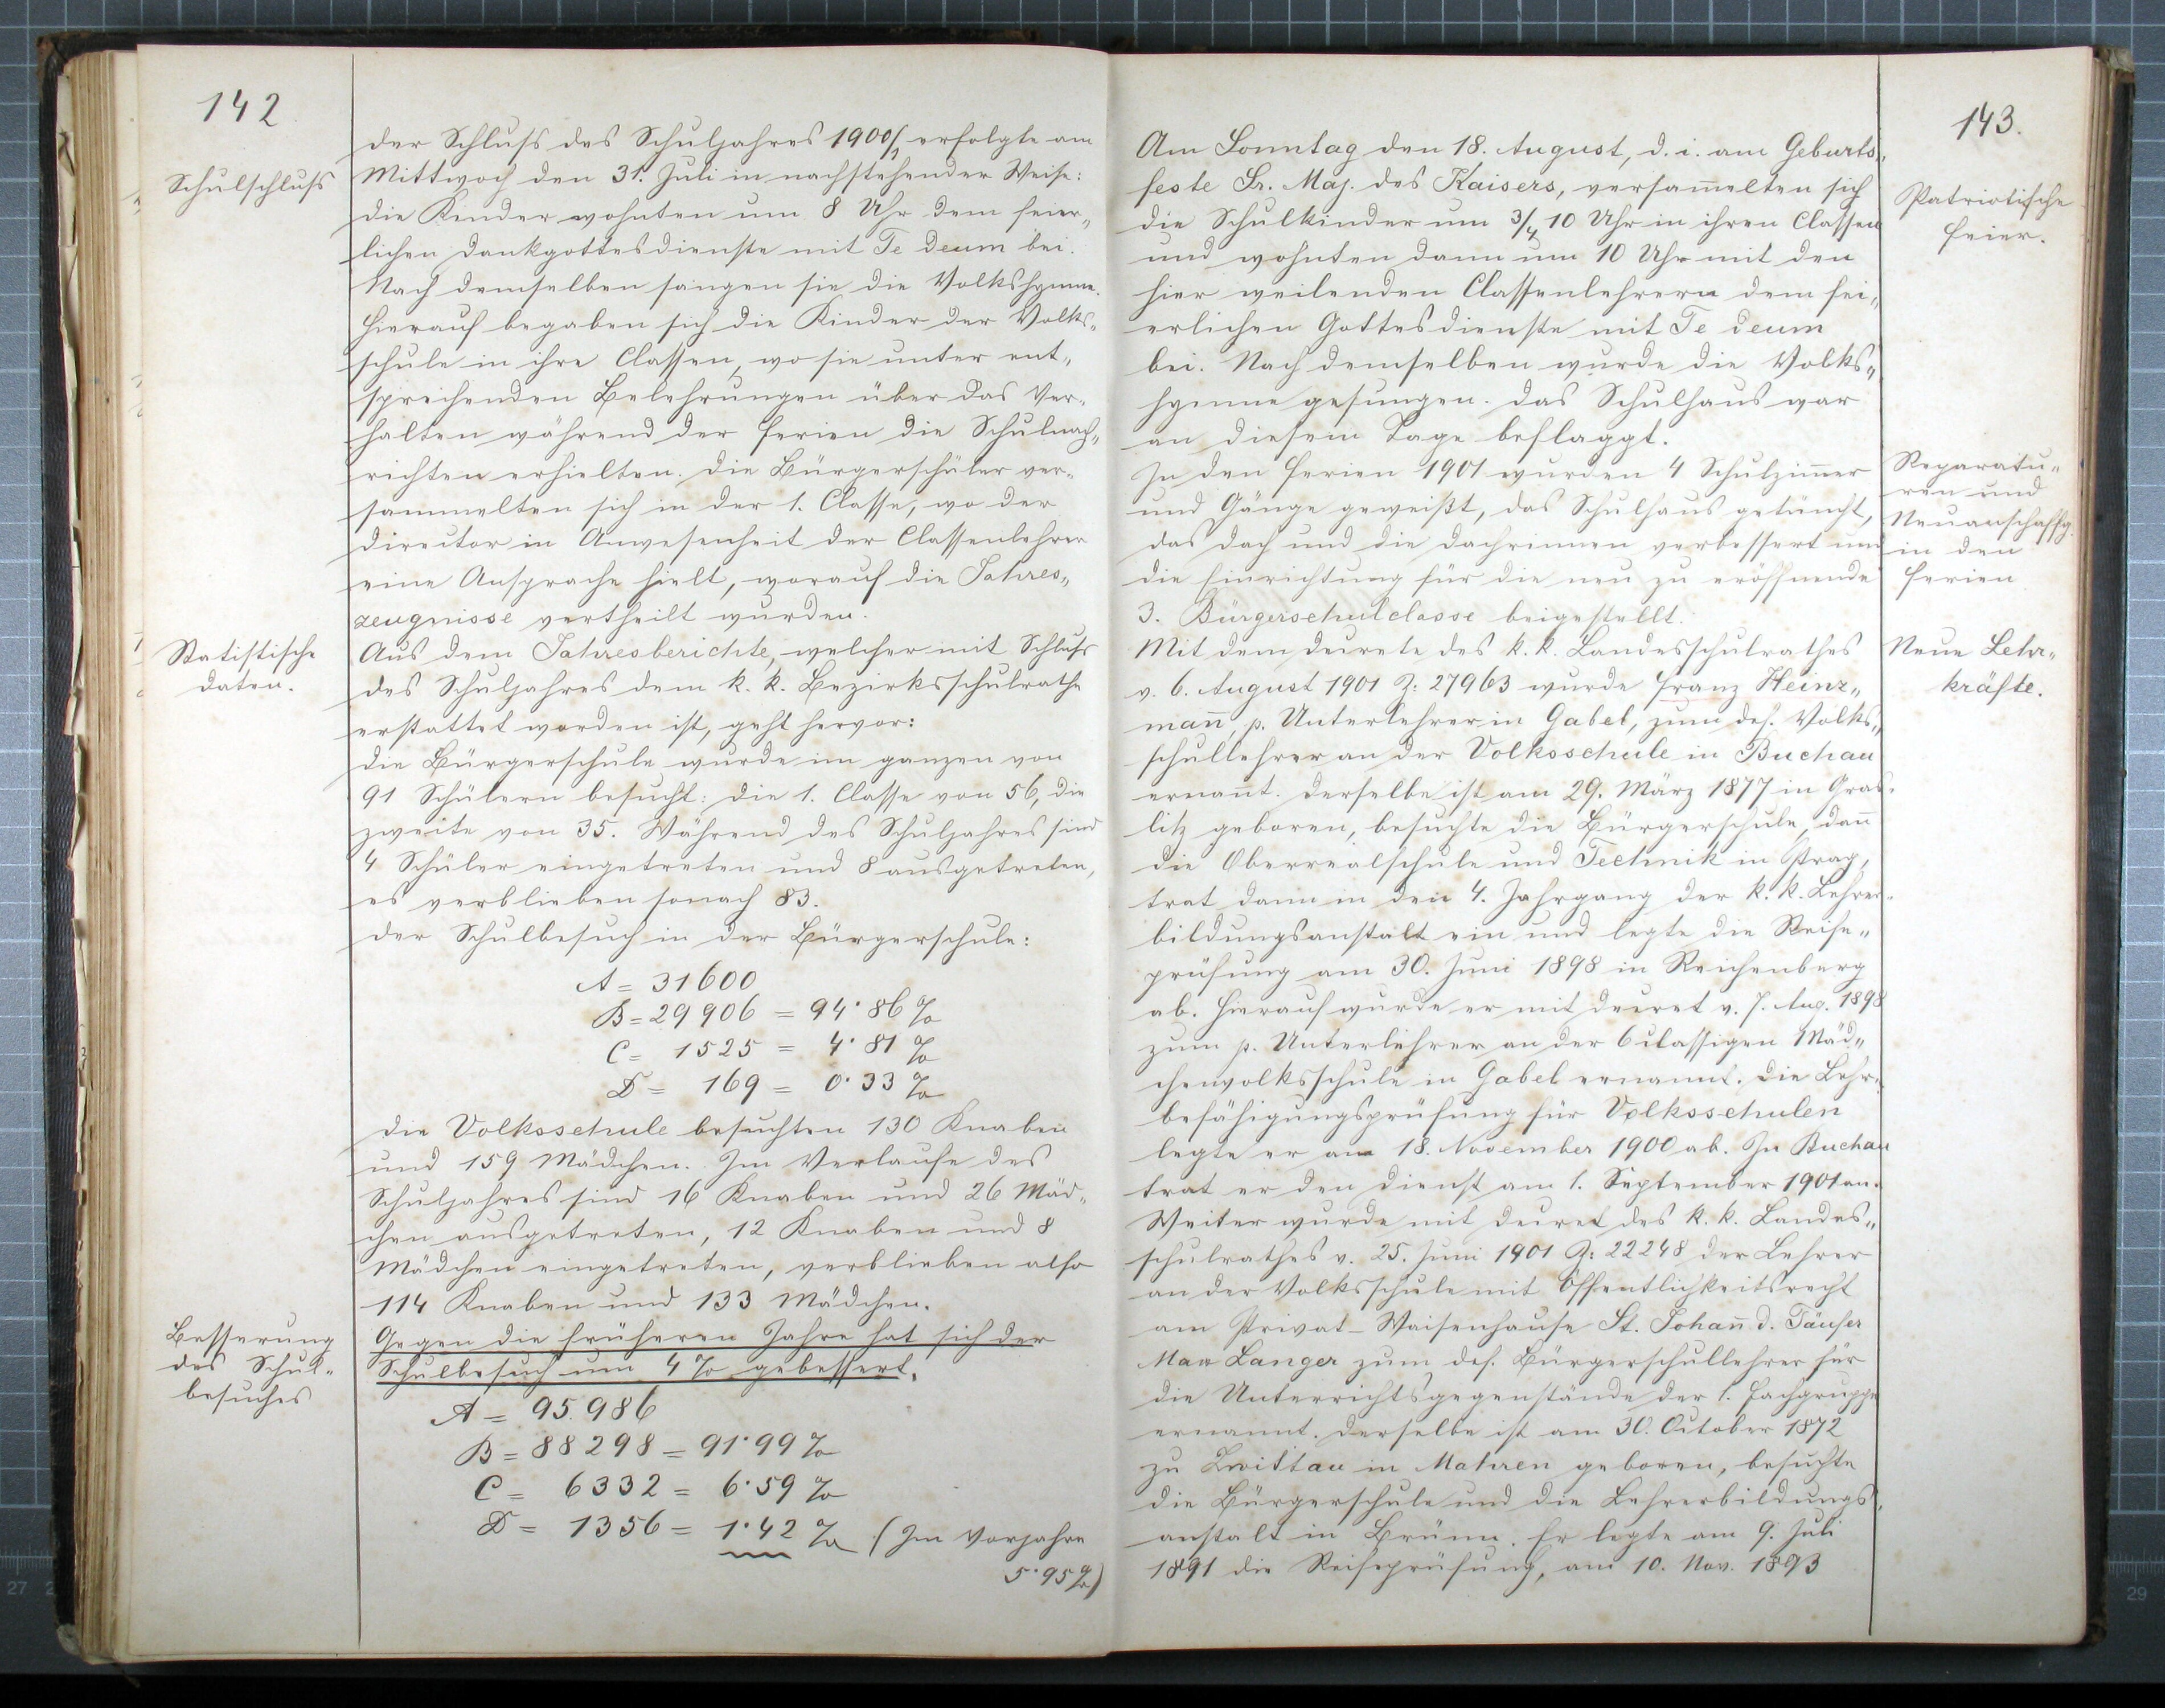 142
Schulschluss
Der Schluss des Schuljahres 1900/1 erfolgte am
Mittwoch den 31. Juli in nachstehender Weise:
Die Kinder wohnten um 8 Uhr dem feier„
lichen Dankgottesdienste mit Te deum bei.
Nach demselben sangen sie die Volkshymne.
Hierauf begaben sich die Kinder der Volks„
schule in ihre Classen, wo sie unter ent„
sprechenden Belehrungen über das Ver„
halten während der Ferien die Schulnach„
richten erhielten. Die Bürgerschüler ver„
sammelten sich in der 1. Classe, wo der
Director in Anwesenheit der Classenlehrer
eine Ansprache hielt, worauf die Jahres„
zeugnisse vertheilt wurden.
Statistische
Daten.
Aus dem Jahresberichte, welcher mit Schluss
des Schuljahres dem k. k. Bezirksschulrathe
erstattet worden ist, geht hervor:
Die Bürgerschule wurde im ganzen von
91 Schülern besucht: die 1. Classe von 56, die
zweite von 35. Während des Schuljahres sind
4 Schüler eingetreten und 8 ausgetreten,
es verblieben sonach 83.
Der Schulbesuch in der Bürgerschule:
A = 31600
B = 29906 = 94·86 %
C = 1525 = 4·81 %
D = 169 = 0·33 %
Die Volksschule besuchten 130 Knaben
und 159 Mädchen. Im Verlaufe des
Schuljahres sind 16 Knaben und 26 Mäd„
chen ausgetreten, 12 Knaben und 8
Mädchen eingetreten, verblieben also
114 Knaben und 133 Mädchen.
Besserung
des Schul„
besuches
Gegen die früheren Jahre hat sich der
Schulbesuch um 4 % gebessert.
A = 95.986
B = 88298 = 91·99 %
C = 6332 = 6·59 %
D = 1356 = 1·42 % (Im Vorjahre
5·95 %)
143.
Am Sonntag den 18. August, d. i. am Geburts„
feste Sr. Maj. des Kaisers, versam̅elten sich
die Schulkinder um 3/4 10 Uhr in ihren Classen
und wohnten dann um 10 Uhr mit den
hier weilenden Classenlehrern dem fei„
erlichen Gottesdienste mit Te deum
bei. Nach demselben wurde die Volks„
hymne gesungen. Das Schulhaus war
an diesem Tage beflaggt.
Patriotische
Feier.
In den Ferien 1901 wurden 4 Schulzim̅er
und Gänge geweißt, das Schulhaus getüncht,
das Dach und die Dachrinnen verbessert und
die Einrichtung für die neu zu eröffnende
3. Bürgerschulclasse beigestellt.
Reparatu„
ren und
Neuanschaffg.
in den
Ferien
Mit dem Decrete des k. k. Landesschulrathes
v. 6. August 1901 Z: 27963 wurde Franz Heinz„
man̅, p. Unterlehrer in Gabel, zum def. Volks„
schullehrer an der Volksschule in Buchau
ernan̅t. Derselbe ist am 29. März 1877 in Gras„
litz geboren, besuchte die Bürgerschule, dan̅
die Oberrealschule und Technik in Prag,
trat dann in den 4. Jahrgang der k. k. Lehrer„
bildungsanstalt ein und legte die Reife„
prüfung am 30. Juni 1898 in Reichenberg
ab. Hierauf wurde er mit Decret v. 7. Aug. 1898
zum p. Unterlehrer an der 6classigen Mäd„
chenvolksschule in Gabel ernannt. Die Lehr„
befähigungsprüfung für Volksschulen
legte er am 18. November 1900 ab. In Buchau
trat er den Dienst am 1. September 1901 an.
Weiter wurde mit Decret des k. k. Landes„
schulrathes v. 25. Juni 1901 Z: 22248 der Lehrer
an der Volksschule mit Öffentlichkeitsrecht
am Privat-Waisenhause St. Johan̅ d. Täufer
Max Langer zum def. Bürgerschullehrer für
die Unterrichtsgegenstände der 1. Fachgruppe
ernannt. Derselbe ist am 30. October 1872
zu Zwittau in Mähren geboren, besuchte
die Bürgerschule und die Lehrerbildungs„
anstalt in Brünn. Er legte am 9. Juli
1891 die Reifeprüfung, am 10. Nov. 1893
Neue Lehr„
kräfte.
27
29